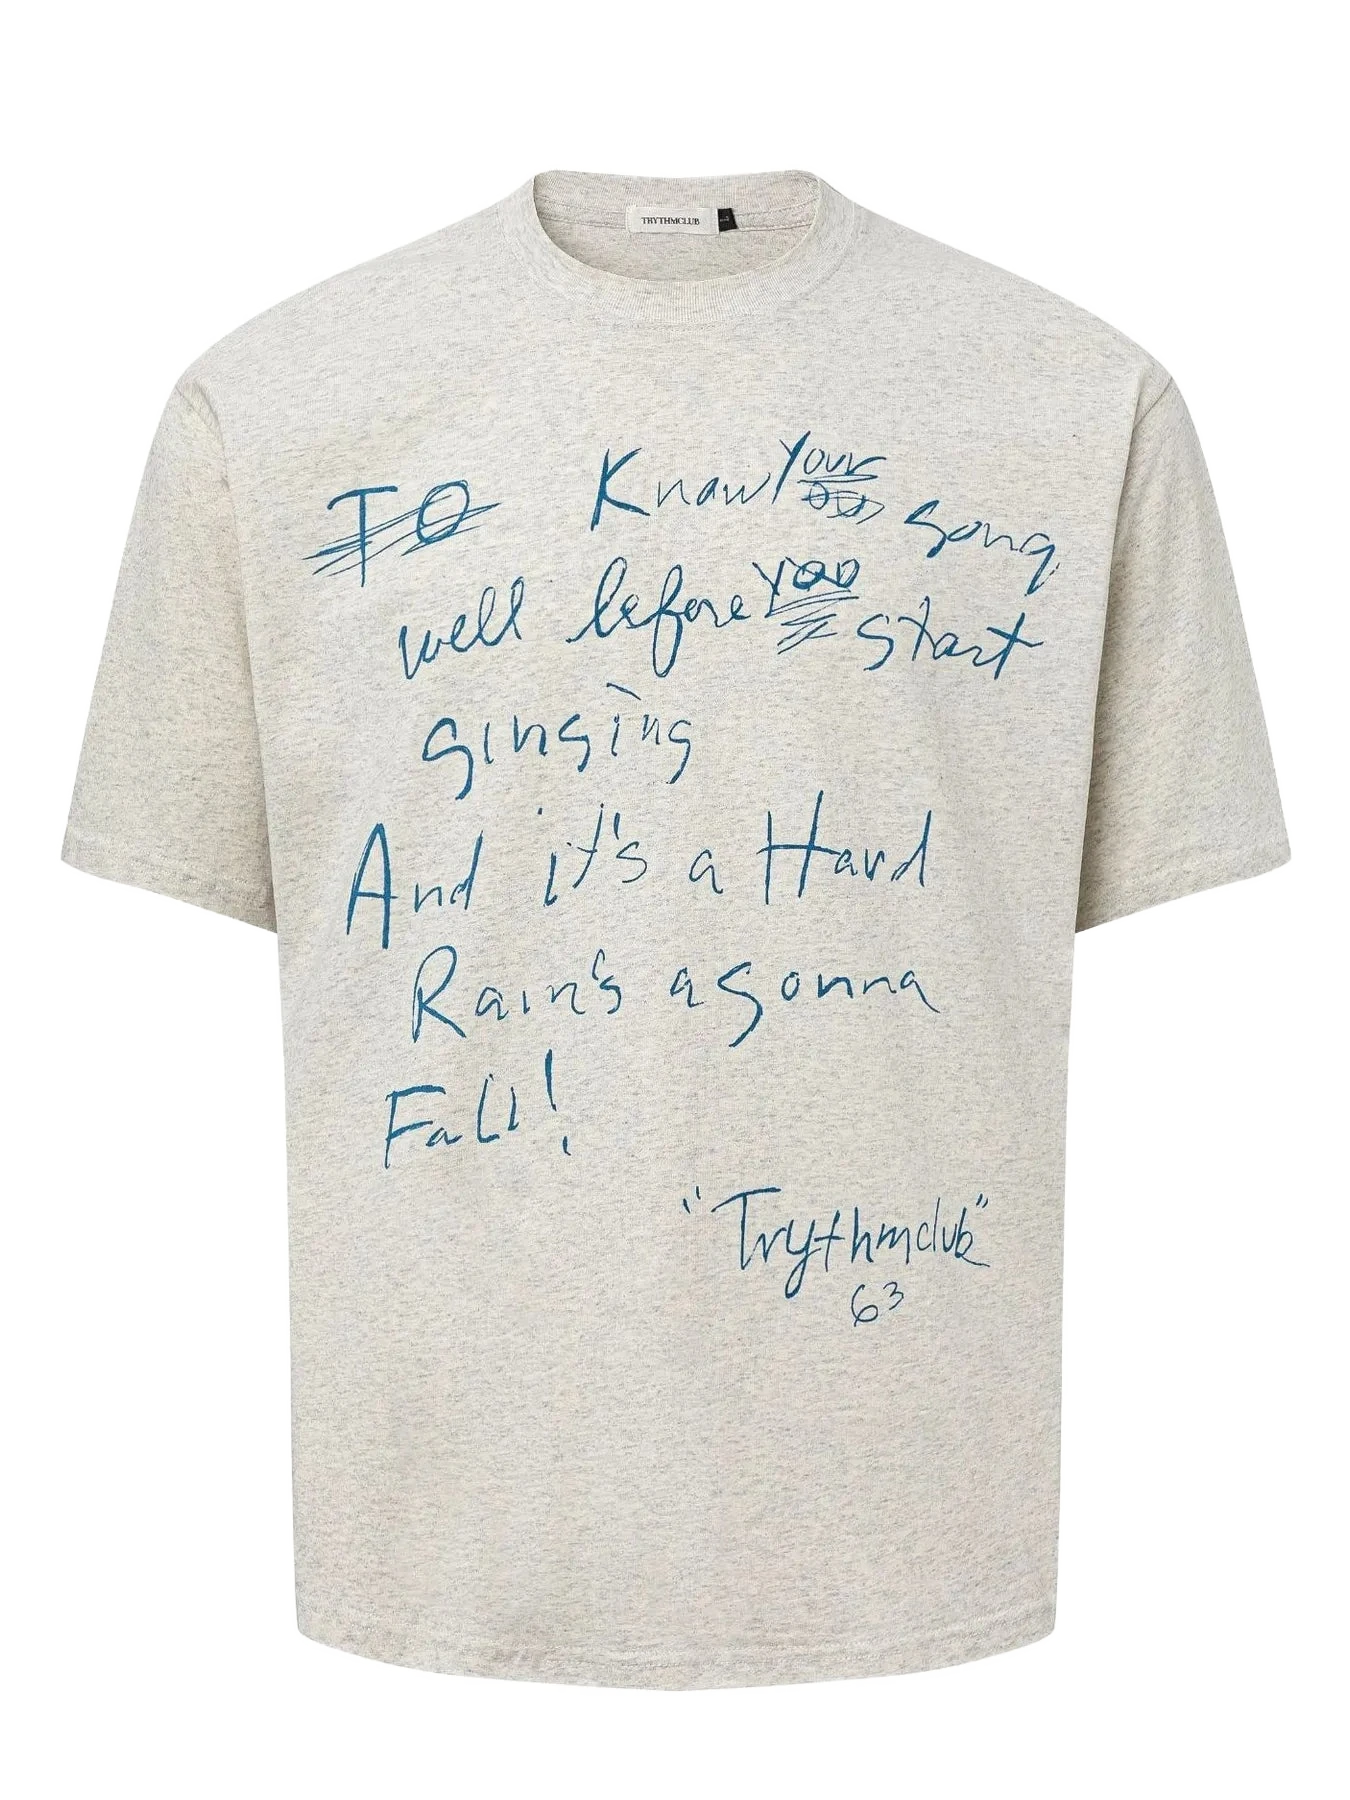 TRYTHMCLUB
TO Know your song
well before you start
singing
And it's a Hard
Rain's a gonna
Fall!
"Trythmclub"
63